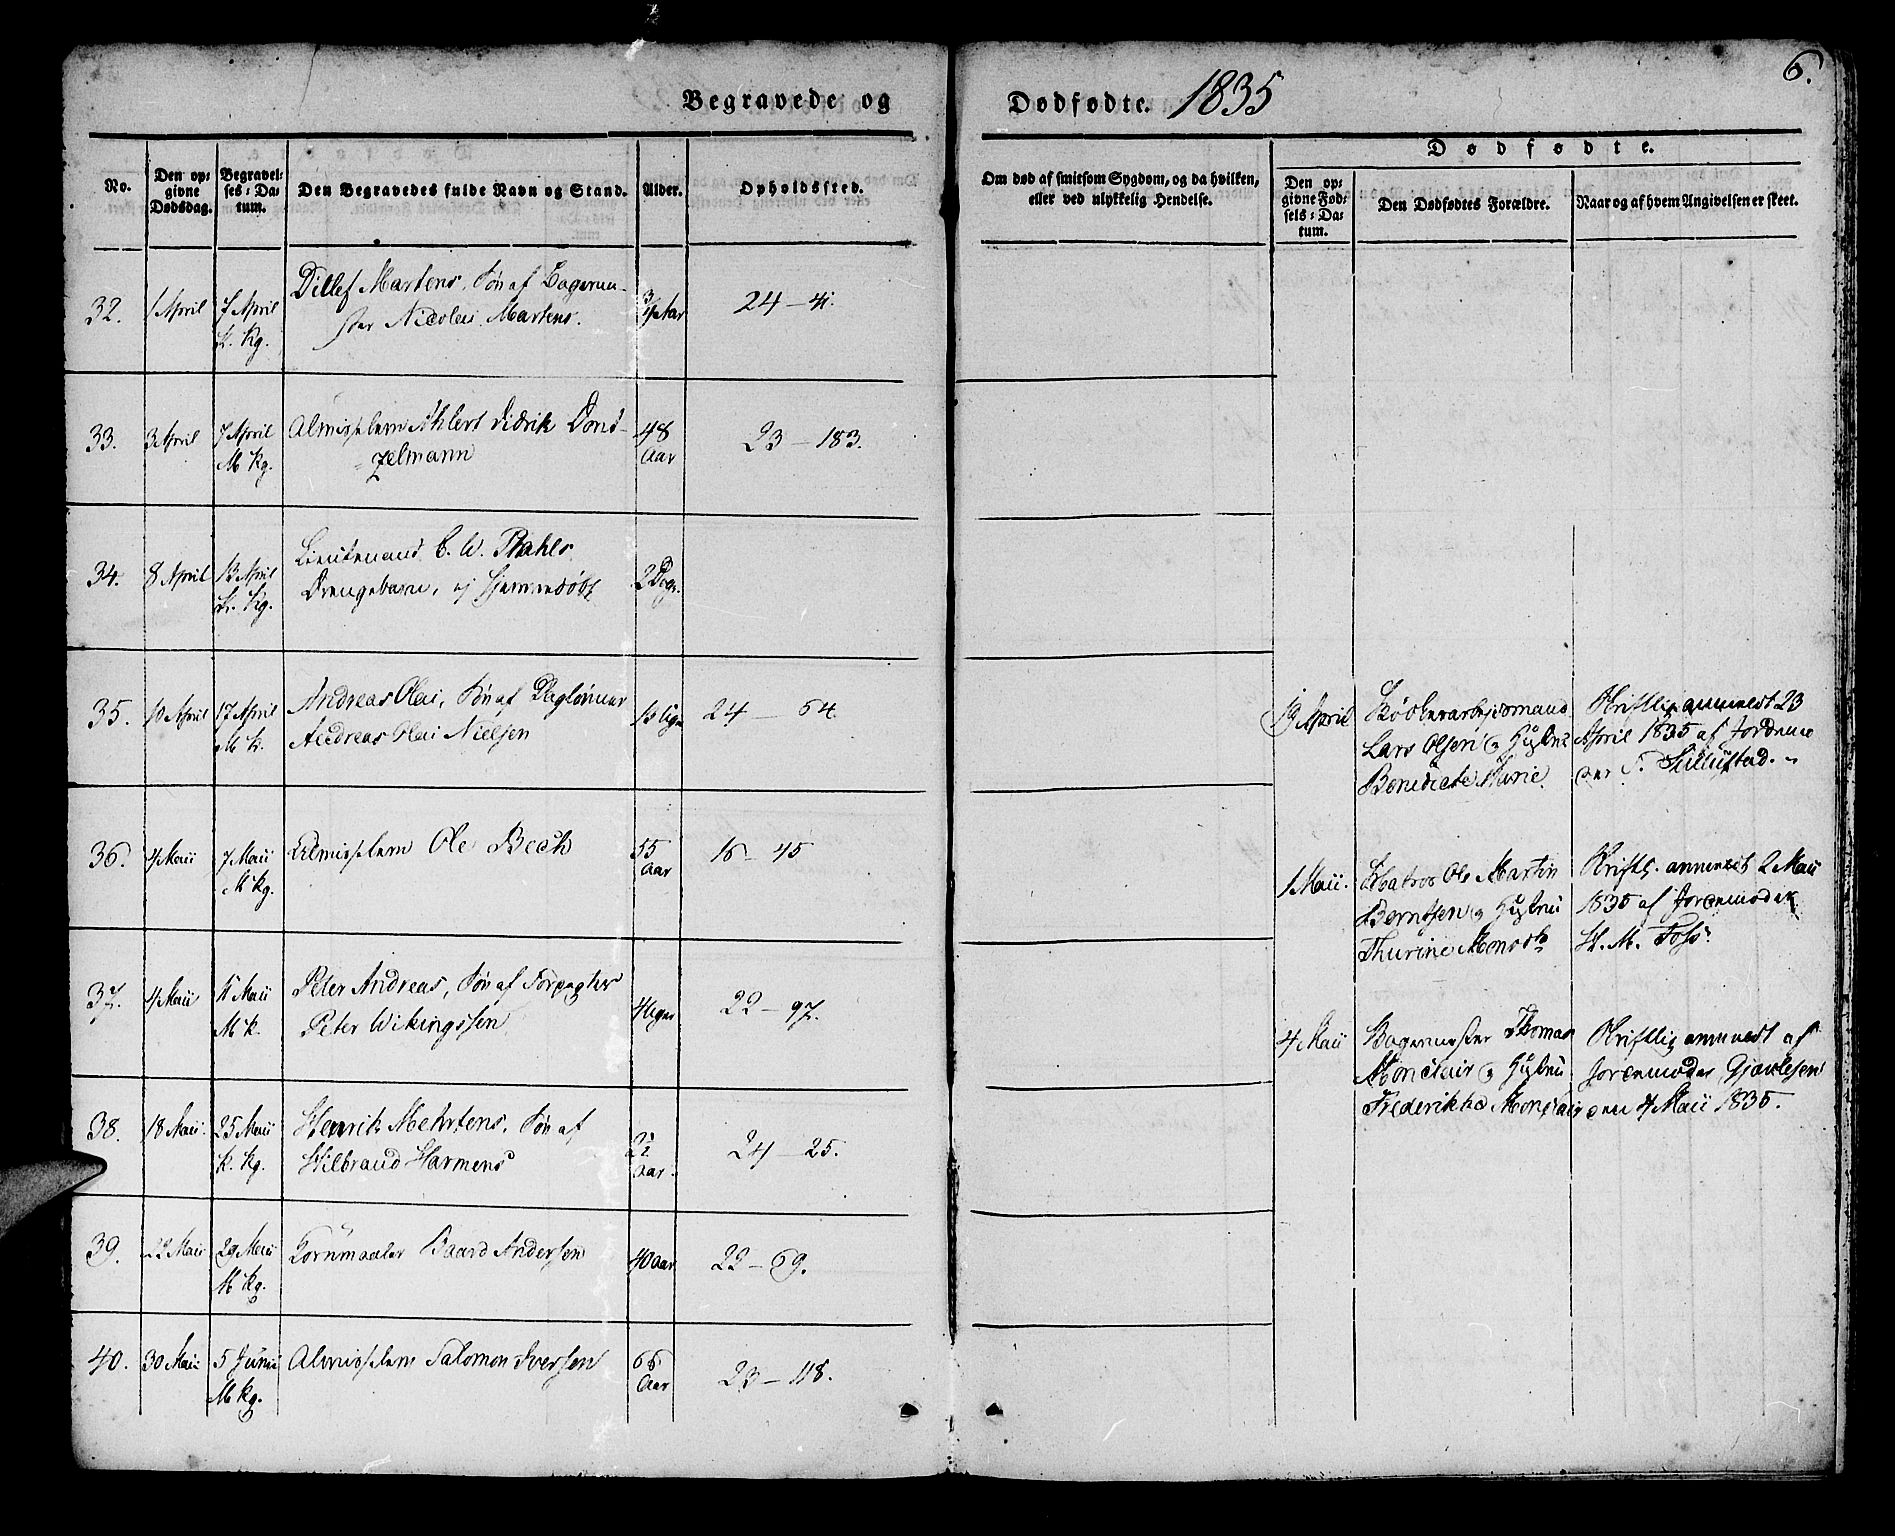 Begravede og Dødfødte. 1835
6.
No.
Den op-
givne
Dødsdag.
Begravel-
ses-Da-
tum.
Den Begravedes fulde Navn og Stand.
Alder.
Opholdssted.
Om død af smitsom Sygdom, og da hvilken,
eller ved ulykkelig Hendelse.
Dødfødte.
Den op-
givne Fød-
sels-Da-
tum.
Den Dødfødtes Forældre.
Naar og af hvem Angivelsen er skeet.
32. 1 April 7 April Ditlef Martens, Søn af Bagerme-
K. Kg. ster Nicolai Martens. 24 – 4.
33. 3 April 7 April Almisselem Ahlert Didrik Dont- 48
M Kg. zelmann Aar 23 – 183.
34. 8 April 13 April Lieutenand C. W. Prahls
K. Kg. Drengebarn, ej hjemmedøbt 2 Dage.
35. 10 April 17 April Andreas Olai, Søn af Dagleønner 24 – 64.
M K. Andreas Olai Nielsen
36. 4 Maii 7 Maii Almisselem Ole Beck 55 16 – 45
M Kg. Aar
37. 4 Maii 11 Maii Peter Andreas, Søn af Forpagter
M K. Peter Wikingssen 4 Uger 22 – 97.
38. 18 Maii. 25 Maii Henrik Mehrtens, Søn af
K. Kg. Hilbrand Harmens Aar. 24 – 25.
39. 22 Maii 29 Maii Kornmaaler Baard Andersen 40 Aar 22 – 69.
M Kg.
40. 30 Maii 5 Junii Almisselem Salomon Iversen 66 23 – 118.
M Kg. Aar
19 April Arbejdsmand Skriftlig anmeldt 23
Lars Olsen og Hustru April 1835 af Jordemo
Benedicte Marie.
1 Maii. Matros Ole Martin Skriftl. anmeldt 2 Maii
Berntsen og Hustru 1835 af Jordemoder
Thurine H. M. Foss.
4 Maii Bagermester Thomas Skriftlig anmeldt af
Monclair og Hustru Jordemoder Gjertsen
Frederikke Monclair den 4 Maii 1835.